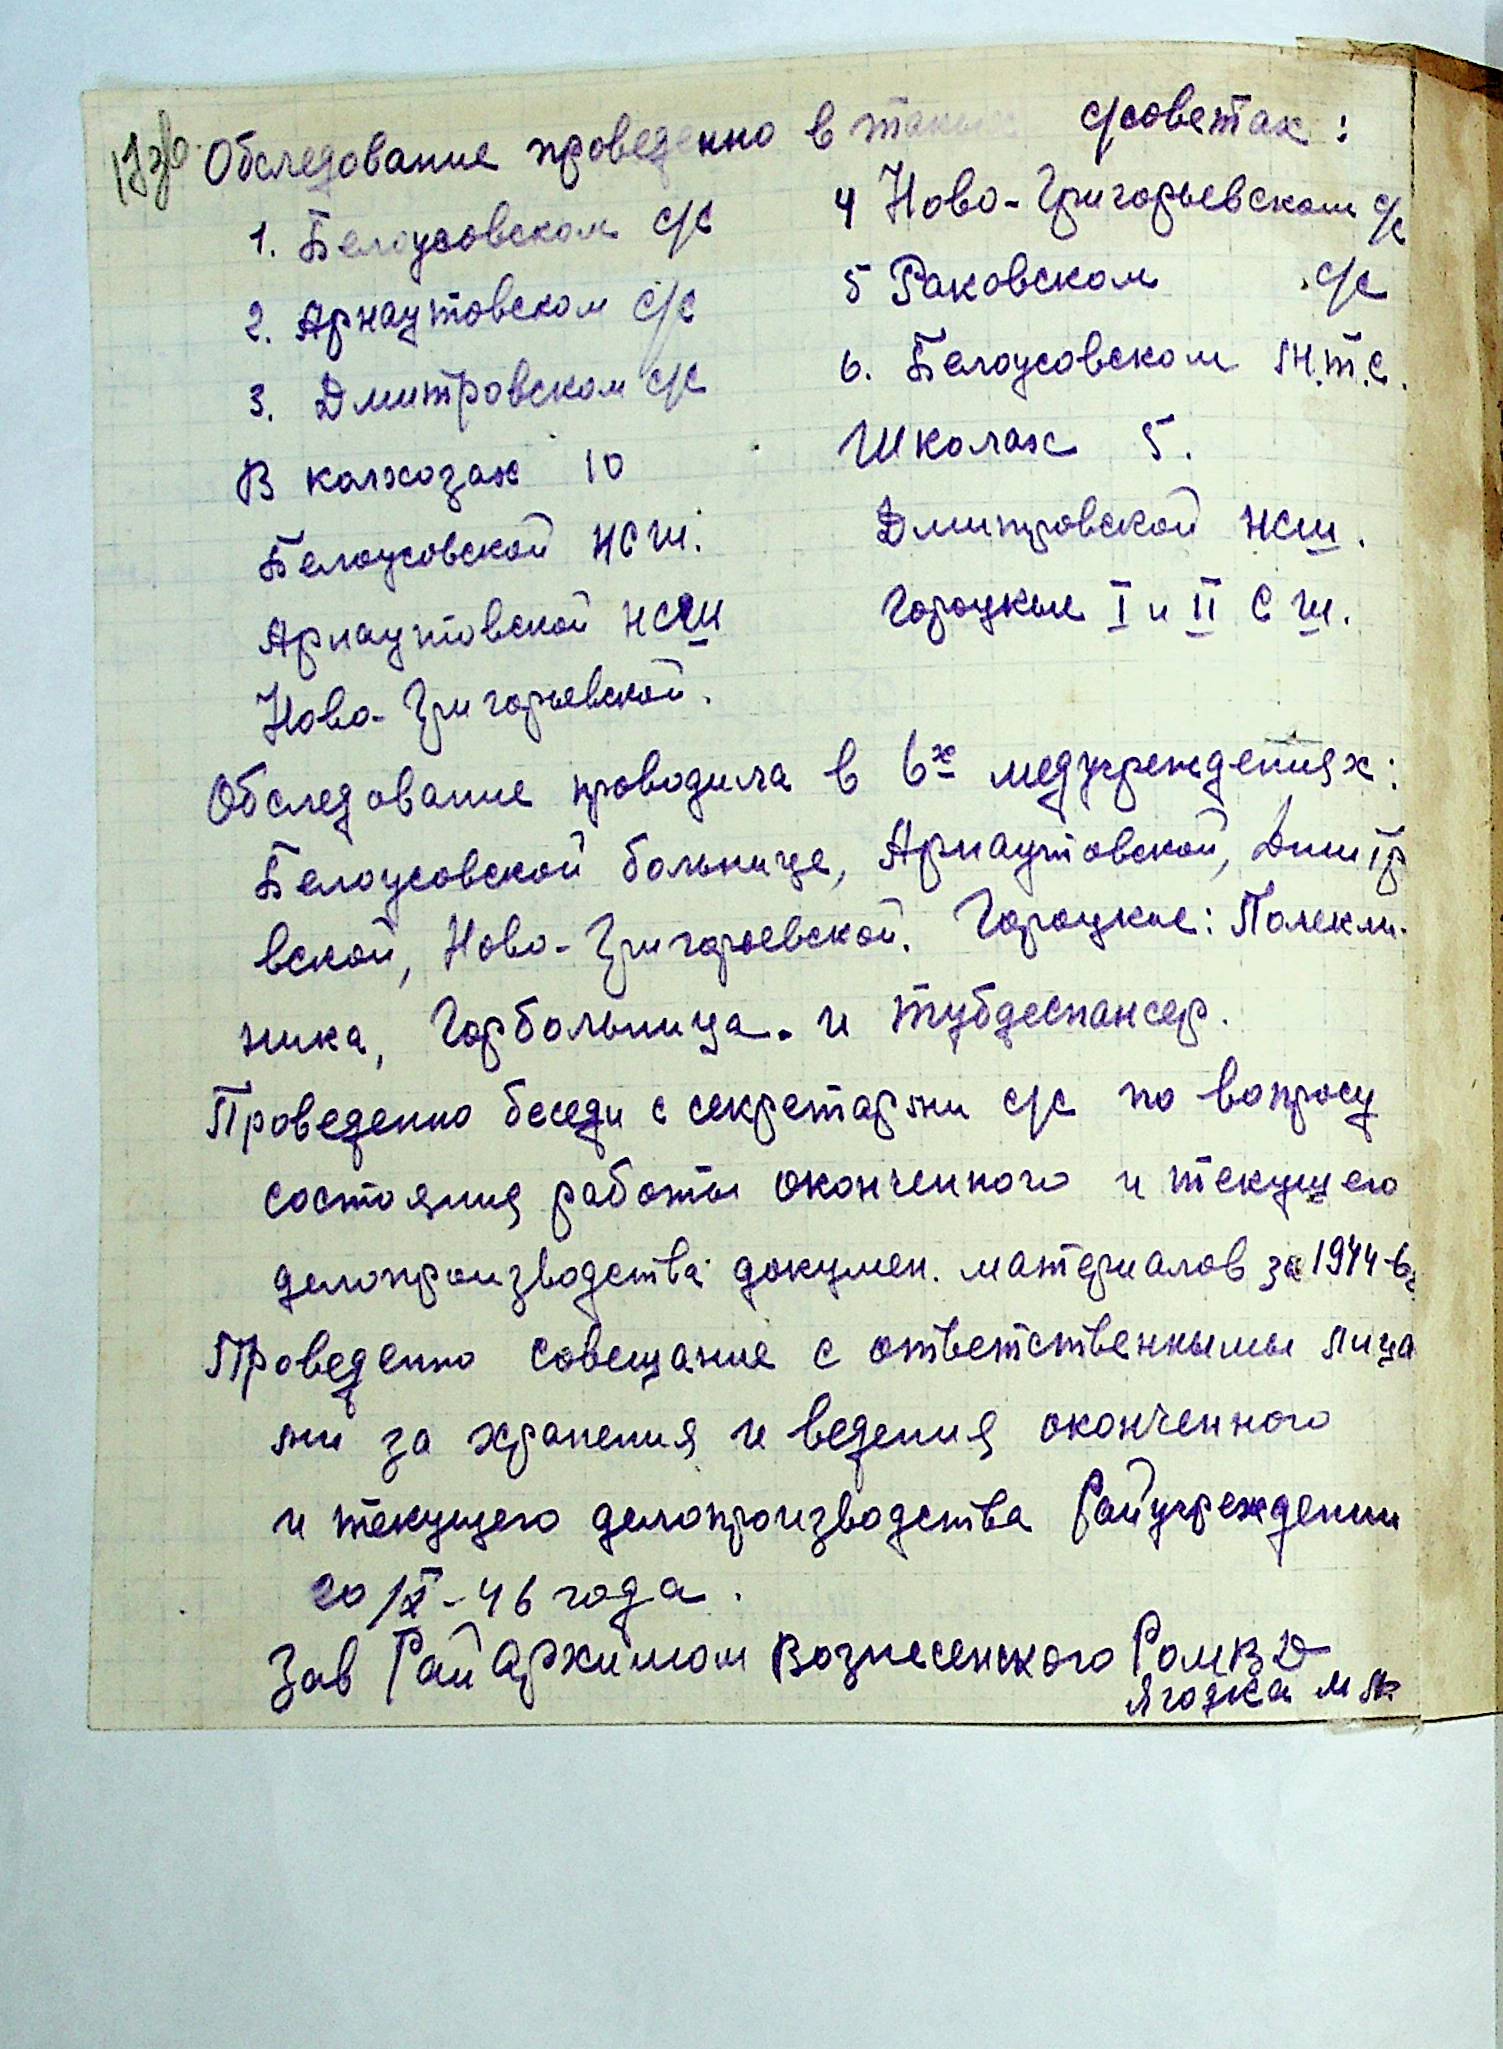 Обследование проведенно в таких с/советах:
1. Белоусовском с/с
2. Арнаутовском с/с
3. Дмитровском с/с
4 Ново-Григорьевском с/с
5 Раковском с/с
6. Белоусовском М.т.с.
В колхозах 10
Школах 5.
Белоусовской НСШ.
Дмитровской НСШ.
Арнаутовской НСШ
Городские I и II С Ш.
Ново-Григорьевской.
Обследование проводила в 6х медучреждениях:
Белоусовской больнице, Арнаутовской, Дмитр
вской, Ново-Григорьевской. Городские: Полекли-
ника, Горбольница. и тубдеспансер.
Проведенно беседи с секретарями с/с по вопросу
состояния работы оконченного и текущего
делопроизводства докумен. материалов за 1944-
Проведенно совещание с ответственнымы лица
ми за хранения и ведения оконченного
и текущего делопроизводства Райучреждении
20/IX-46 года.
Зав РайАрхивом Вознесенского РОМВД
Ягодка М